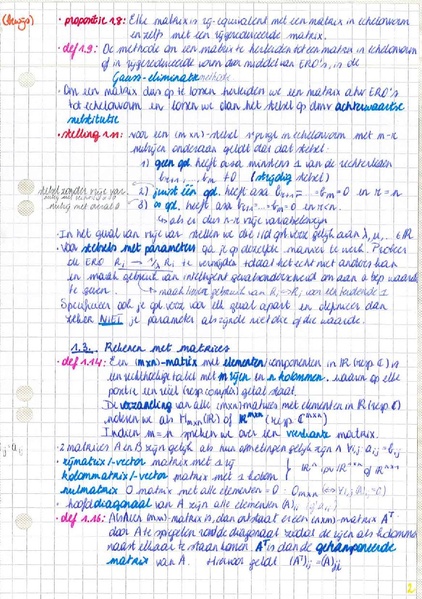 (bewijs) • propositie 1.8: Elke matrix is rij-equivalent met een matrix in echelonvorm
en zelfs met een rijgereduceerde matrix.
• def 1.9: De methode om een matrix te herleiden tot een matrix in echelonvorm
of in rijgereduceerde vorm door middel van ERO's, is de
Gauss-eliminatiemethode.
• Om een matrix dus op te lossen herleiden we een matrix ahv ERO's
tot echelonvorm en lossen we dan het stelsel op dmv achterwaartse
substitutie
• stelling 1.11: voor een (m×n)-stelsel in echelonvorm met m-r
nulrijen onderaan geldt dat dat stelsel
1) geen opl. heeft asa minstens 1 van de rechterleden
b_{r+1}, ..., b_m ≠ 0 (strijdig stelsel)
stelsel zonder vrije var. 2) juist één opl. heeft asa b_{r+1} = ... = b_m = 0 en r = n
3) ∞ opl. heeft asa b_{r+1} = ... = b_m = 0 en r<n
↳ als er dus n-r vrije variabelen zijn
• In het geval van vrije var. stellen we die vrij gek. voor gelijk aan λ, μ, ... ∈ ℝ
• Voor stelsels met parameters ga je op dezelfde manier te werk. Probeer
de ERO R_i → λR_i te vermijden totdat het echt niet anders kan
en maak gebruik van intelligent gevalsonderscheid om aan a bep waarde
te geven.
Specifieer ook je opl voor elk geval apart en definieer dan
zeker NIET je parameter als zijnde niet die of die waarde.
1.3. Rekenen met matrices
• def 1.14: Een (m×n)-matrix met elementen/componenten in ℝ (resp ℂ) is
een rechthoekige tabel met m rijen en n kolommen. waarin op elke
positie een reëel (resp complex) getal staat.
De verzameling van alle (m×n)-matrices met elementen in ℝ (resp ℂ)
noteren we als M_{m×n}(ℝ) of ℝ^{m×n} (resp ℂ^{m×n})
Indien m=n spreken we over een vierkante matrix.
• 2 matrices A en B zijn gelijk als hun afmetingen gelijk zijn ∧ ∀i,j: a_{ij} = b_{ij}
• rijmatrix/-vector matrix met 1 rij
kolommatrix/-vector matrix met 1 kolom
• nulmatrix O matrix met alle elementen = 0
• hoofddiagonaal van A zijn alle elementen (A)_{ii}
• def 1.16: Als A een (m×n)-matrix is, dan ontstaat er een (n×m)-matrix A^T
door A te spiegelen rond de diagonaal zodat de rijen als kolommen
naast elkaar te staan komen. A^T is dan de getransponeerde
matrix van A. Hiervoor geldt (A^T)_{ij} = (A)_{ji}
2